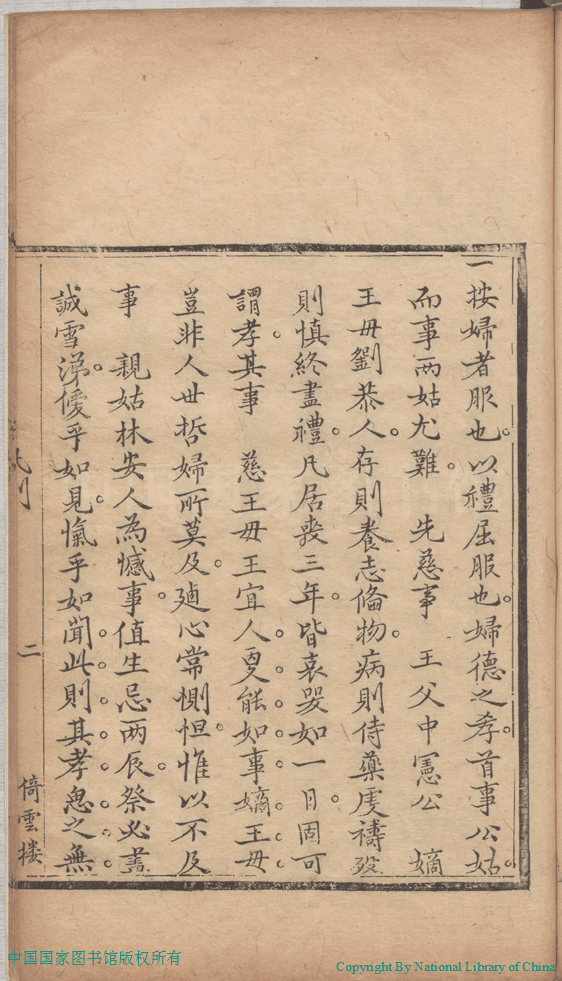 一按婦者服也以禮屈服也婦德之孝首事公姑
而事兩姑尤難　先慈事　王父中憲公　嫡
王毋劉恭人存則養志偹物病則侍藥虔禱殁
則慎終盡禮凡居喪三年皆哀毀如一日固可
謂孝其事　慈王毋王宜人更能如事嫡王毋
豈非人世哲婦所莫及廼心常惻怛惟以不及
事　親姑林安人為憾事值生忌兩辰祭必盡
誠雪涕僾乎如見愾乎如聞此則其孝思之無
二
倚雲楼
中国国家图书馆版权所有
Copyright By National Library of China